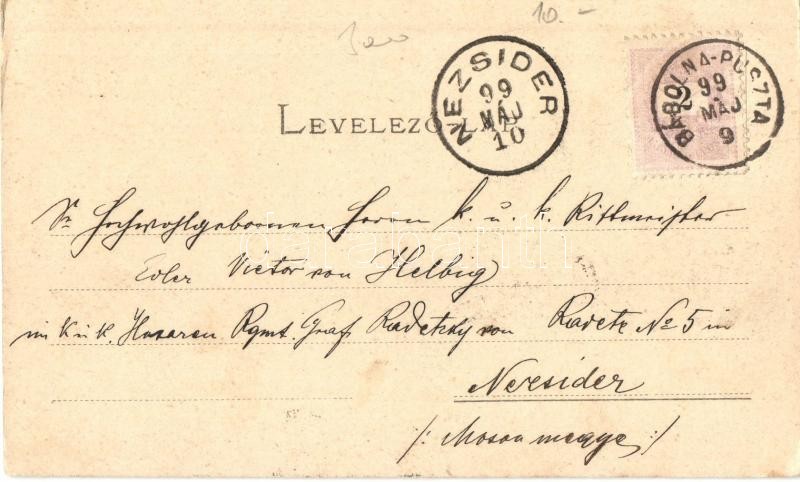 10.-
NEZSIDER
99
MÁJ
10
BÁBOLNA-PUSZTA
99
MÁJ
9
2
LEVELEZŐ-LAP
Sr Hochwohlgebornen Herrn k. u. k. Rittmeister
Edler Victor von Helbig
im K u K. Husaren Rgmt. Graf Radetzky von Radetz No 5 in
Nezsider
/: Moson megye :/
darabanth